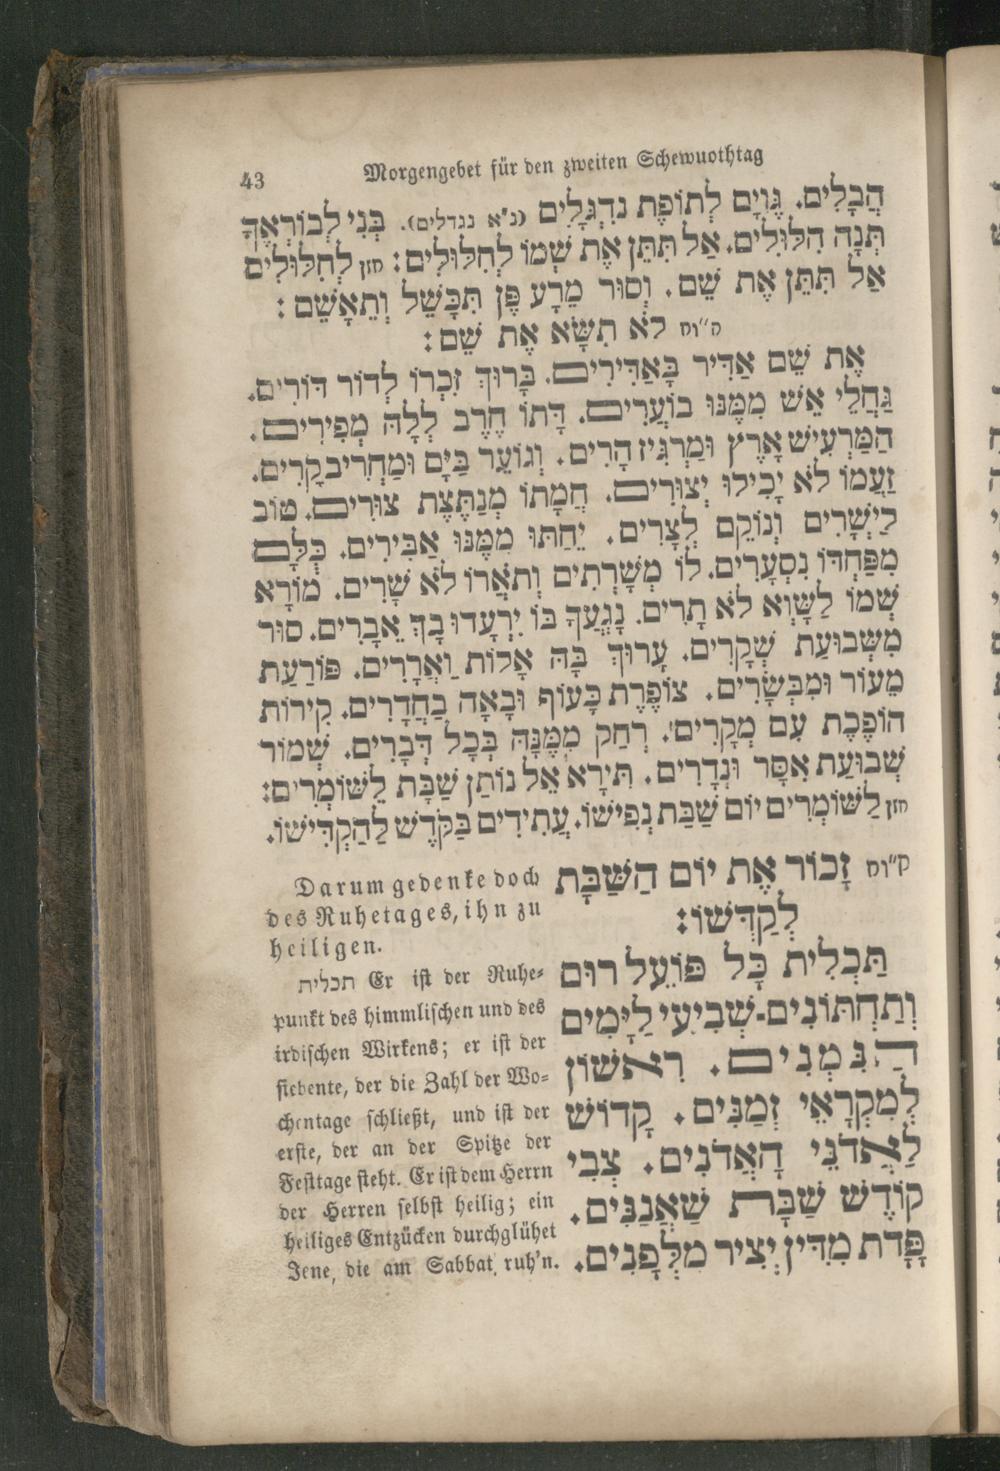 43 Morgengebet für den zweiten Schewuothtag
הֲבָלִים. גֶּוְיָם לְתוֹפֶת נִדְגָּלִים (נ״א נגדלים). בְּנִי לְבוֹרְאֶךָ
תְּנָה הִלּוּלִים. אַל תִּתֵּן אֶת שְׁמוֹ לְחִלּוּלִים: חזן לְחִלּוּלִים
אַל תִּתֵּן אֶת שֵׁם. וְסוּר מֵרָע פֶּן תִּכָּשֵׁל וְתֵאָשֵׁם:
ק״וח לֹא תִשָּׂא אֶת שֵׁם:
אֶת שֵׁם אַדִּיר בָּאַדִּירִים. בָּרוּךְ זִכְרוֹ לְדוֹר דּוֹרִים.
גַּחֲלֵי אֵשׁ מִמֶּנּוּ בּוֹעֲרִים. דָּתוֹ חֶרֶב לְלָהּ מְפִירִים.
הַמַּרְעִישׁ אֶרֶץ וּמַרְגִּיז הָרִים. וְגוֹעֵר בַּיָּם וּמַחְרִיב קָרִים.
זַעֲמוֹ לֹא יָכִילוּ יְצוּרִים. חֲמָתוֹ מְנַתֶּצֶת צוּרִים. טוֹב
לַיְשָׁרִים וְנוֹקֵם לְצָרִים. יֵחַתּוּ מִמֶּנּוּ אַבִּירִים. כֻּלָּם
מִפַּחְדּוֹ נִסְעָרִים. לוֹ מְשָׁרְתִים וְתֹאֲרוֹ לֹא שָׁרִים. מוֹרָא
שְׁמוֹ לַשָּׁוְא לֹא תָרִים. נָגְעֲךָ בּוֹ יִרְעָדוּ בָךְ אֵבָרִים. סוּר
מִשְּׁבוּעַת שְׁקָרִים. עָרוּךְ בָּהּ אָלוֹת וַאֲרָרִים. פּוֹרַעַת
מֵעוֹר וּמִבְּשָׂרִים. צוֹפֶרֶת כָּעוֹף וּבָאָה בַחֲדָרִים. קִירוֹת
הוֹפֶכֶת עִם מְקָרִים. רְחַק מִמֶּנָּה בְּכָל דְּבָרִים. שְׁמוֹר
שְׁבוּעַת אִסָּר וּנְדָרִים. תִּירָא אֵל נוֹתֵן שַׁבָּת לַשּׁוֹמְרִים:
חזן לַשּׁוֹמְרִים יוֹם שַׁבַּת נְפִישׁוֹ. עֲתִידִים בַּקֹּדֶשׁ לְהַקְדִּישׁוֹ.
ק״וח זָכוֹר אֶת יוֹם הַשַּׁבָּת
לְקַדְּשׁוֹ:
תַּכְלִית כָּל פּוֹעֵל רוּם
וְתַחְתּוֹנִים. שְׁבִיעִי לַיָּמִים
הַנִּמְנִים. רִאשׁוֹן
לְמִקְרָאֵי זְמַנִּים. קָדוֹשׁ
לַאֲדֹנֵי הָאֲדֹנִים. צְבִי
קוֹדֶשׁ שַׁבָּת שַׁאֲנַנִּים.
פָּדַת מִדִּין יְצִיר מִלְּפָנִים.
Darum gedenke doch
des Ruhetages, ihn zu
heiligen.
תכלית Er ist der Ruhe=
punkt des himmlischen und des
irdischen Wirkens; er ist der
siebente, der die Zahl der Wo=
chentage schließt, und ist der
erste, der an der Spitze der
Festtage steht. Er ist dem Herrn
der Herren selbst heilig; ein
heiliges Entzücken durchglühet
Jene, die am Sabbat ruh'n.